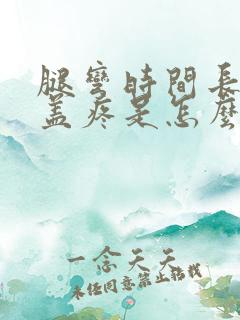 腿彎時間長
蓋疼是怎麼
一念天天
未經同意禁止轉載